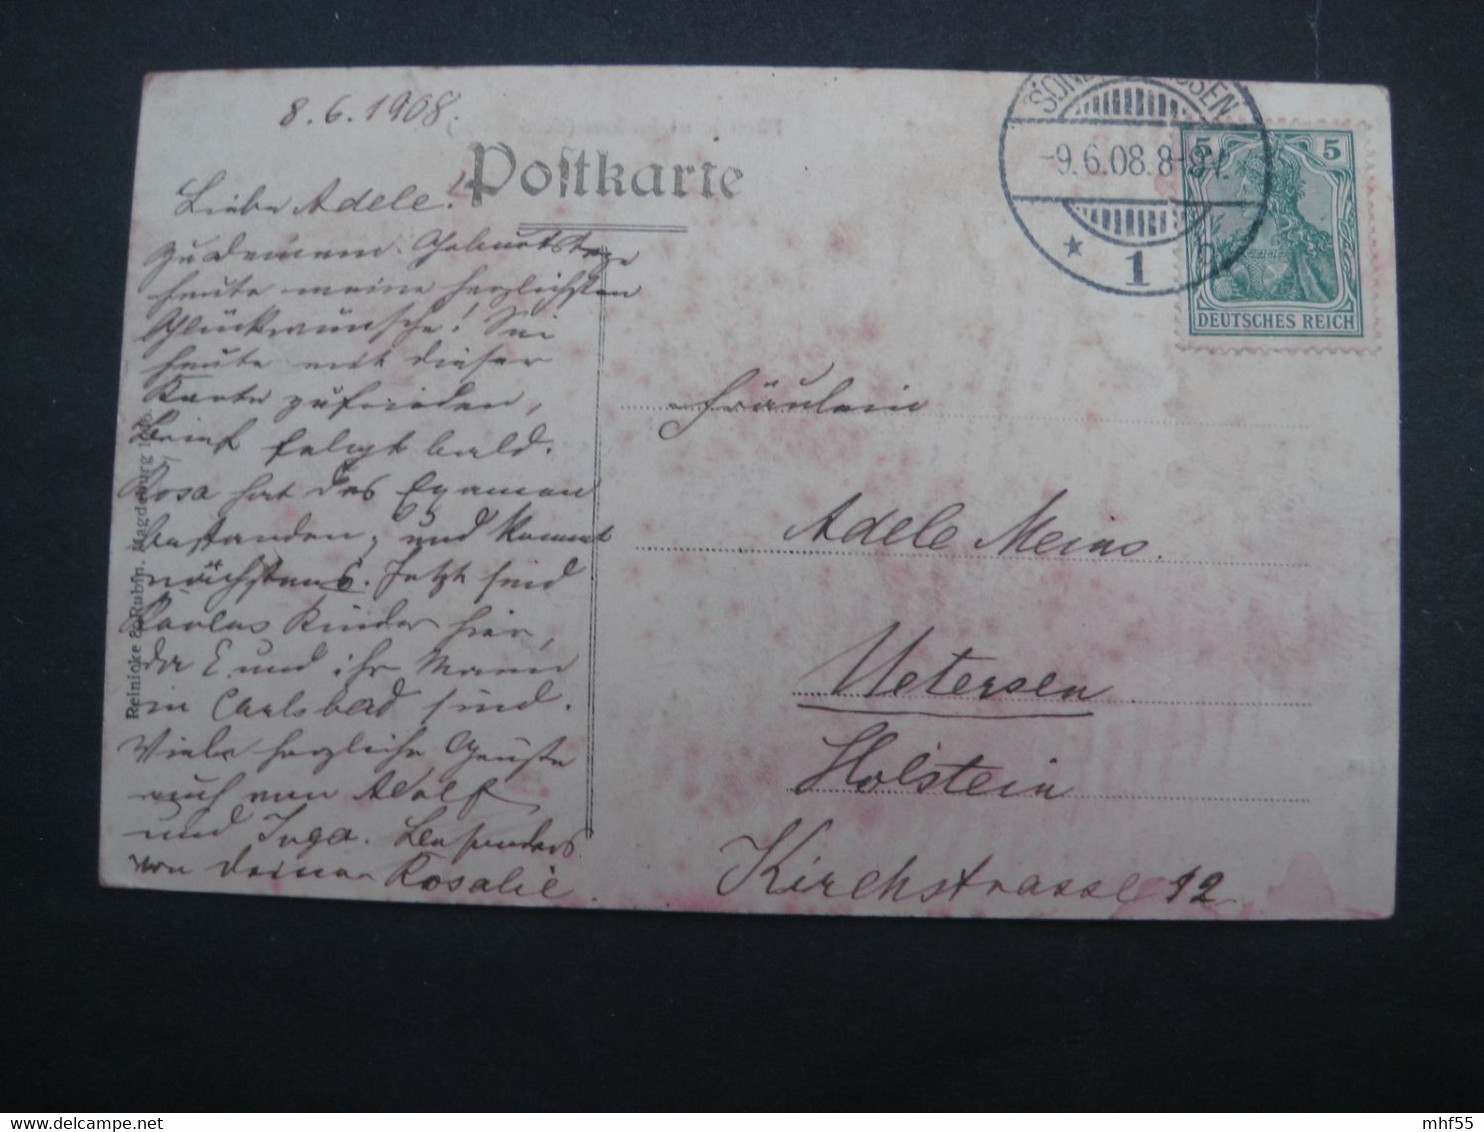 8.6.1908.
Postkarte
Liebe Adele!
Zu Deinem Geburtstage
heute meine herzlichsten
Glückwünsche! Sei
heute mit dieser
Karte zufrieden,
Brief folgt bald.
Rosa hat das Examen
bestanden, und kommt
nächstens. Jetzt sind
Kinder hier,
da E. und ihr Mann
in Carlsbad sind.
Viele herzliche Grüße
auch von Adolf
und Inga. Besonders
von Deiner Rosalie.
Reinicke & Rubin, Magdeburg
SON SEN
-9.6.08.8-9V.
* 1
5 5
DEUTSCHES REICH
Fräulein
Adele Meins.
Uetersen
Holstein
Kirchstrasse 12
delcampe.net
mhf55